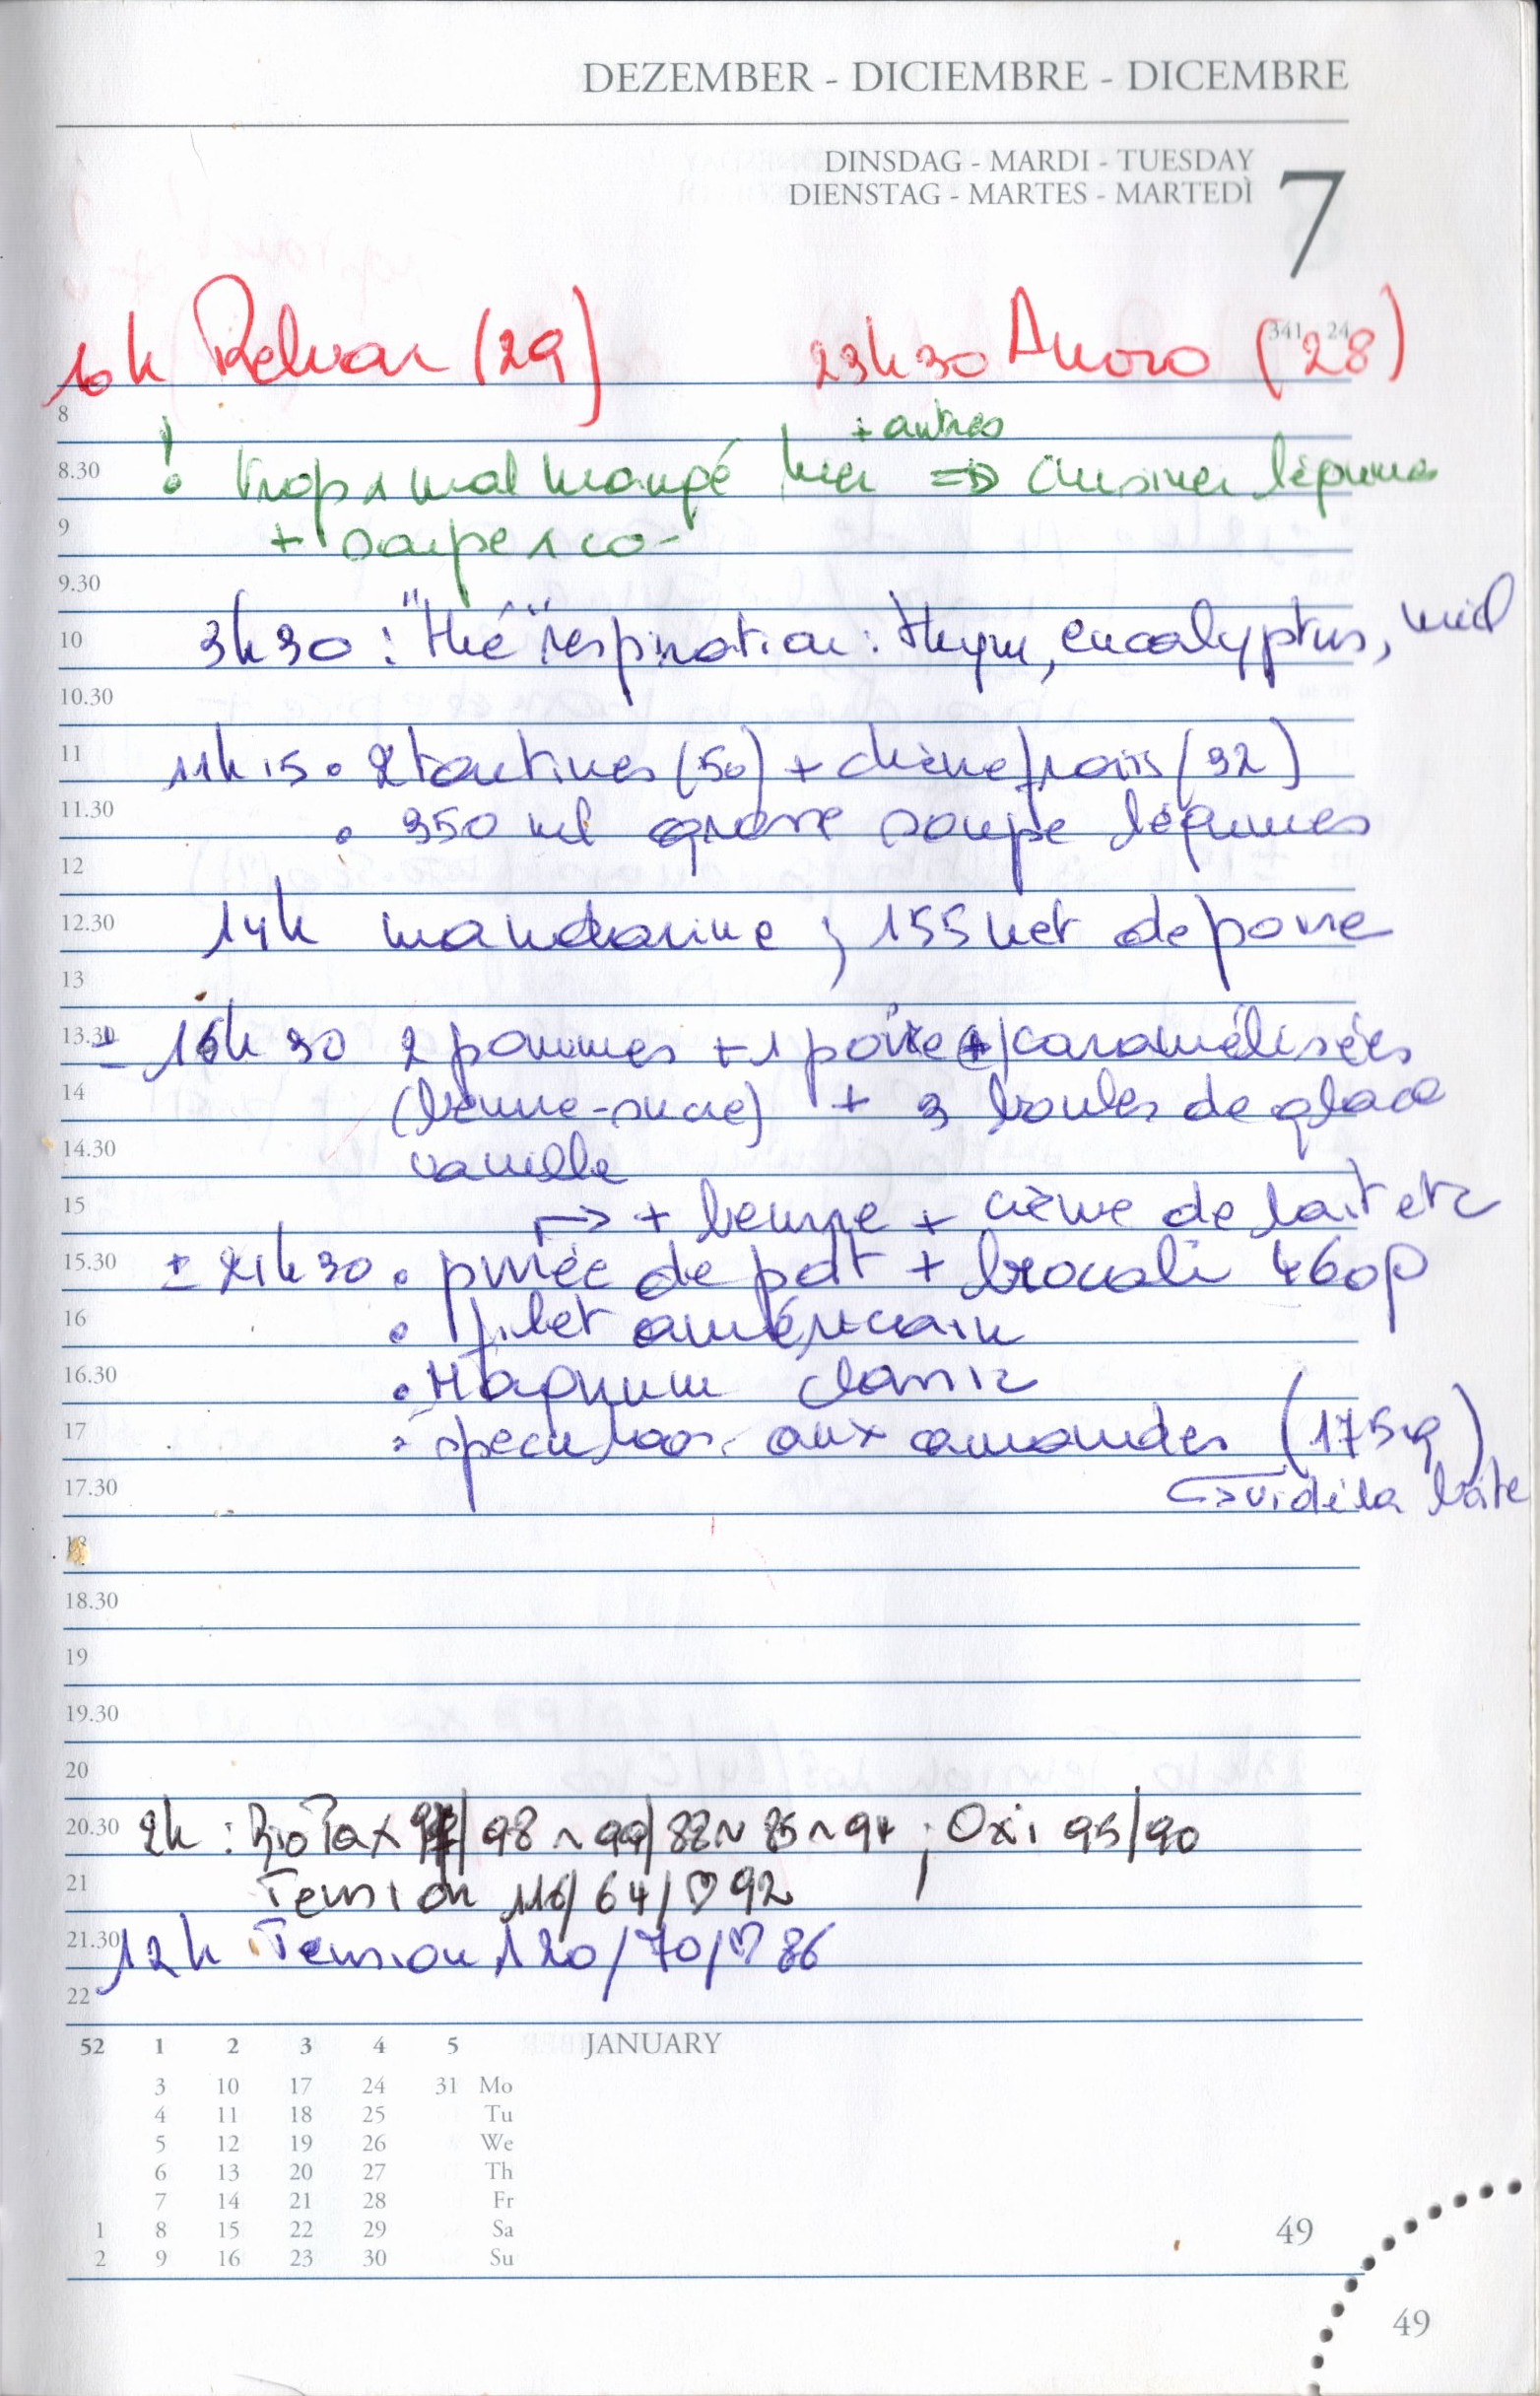 DEZEMBER - DICIEMBRE - DICEMBRE
DINSDAG - MARDI - TUESDAY
DIENSTAG - MARTES - MARTEDÌ
7
341 24
10h Relvar (29) 23h30 Anoro (28)
8
+ autres
8.30 ! trop & mal mangé hier => cuisiner légumes
9 + soupe &
9.30
10 3h30 : "thé" respiration : thym, eucalyptus, miel
10.30
11 11h15 • 2 tartines (50) + chèvre frais (32)
11.30 • 350 ml grosse soupe légumes
12
12.30 14h mandarine ; 155 net de poire
13
13.30 ± 16h30 2 pommes + 1 poire caramélisées
14 (beurre-sucre) + 3 boules de glace
14.30 vanille
15 ↦ + beurre + crème de lait etc
15.30 ± 21h30 • purée de pdt + brocoli 460g
16 • filet américain
16.30 • Magnum classic
17 • speculoos aux amandes (175g)
17.30 ↪ vidé la boîte
18
18.30
19
19.30
20
20.30 2h : / 98 ~ 99 / 88 ~ 85 ~ 94 ; Oxi 95/90
21 Tension 116/64/♡ 92
21.30 12h Tension 120/70/♡ 86
22
52 1 2 3 4 5 JANUARY
3 10 17 24 31 Mo
4 11 18 25 Tu
5 12 19 26 We
6 13 20 27 Th
7 14 21 28 Fr
1 8 15 22 29 Sa
2 9 16 23 30 Su
49
49